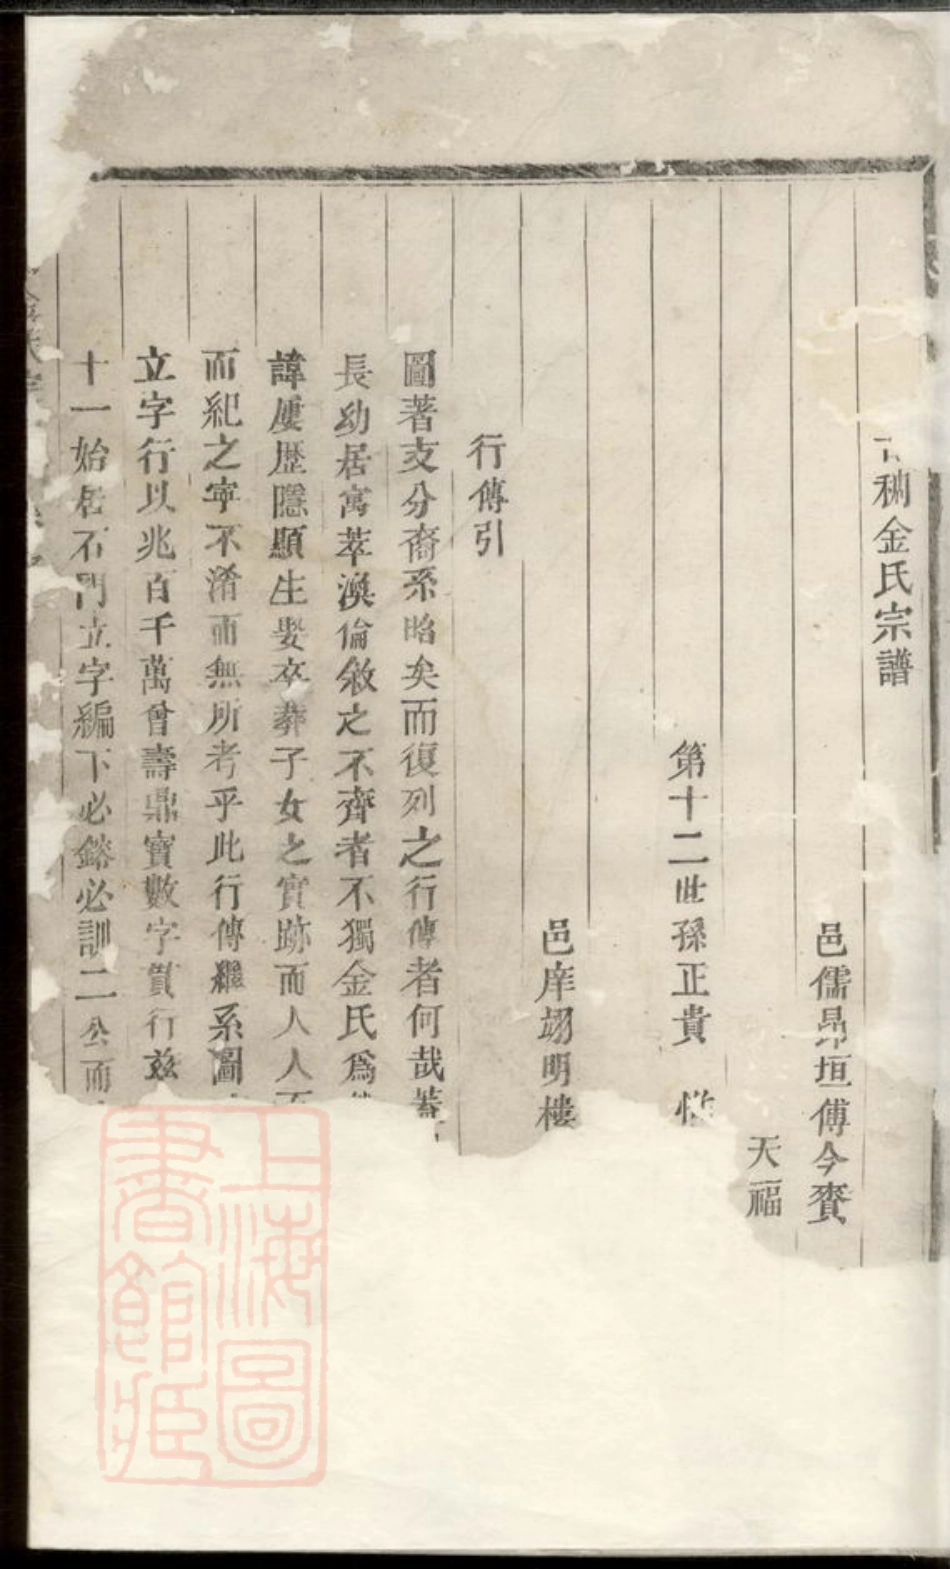 秱金氏宗譜
邑儒昂垣傅今賚
天福
第十二世孫正貴
邑庠翊明樓
行傳引
圖著支分裔系昭矣而復列之行傳者何哉蓋
長幼居寓萃渙倫敘之不齊者不獨金氏爲
諱屢歴隱顯生娶卒葬子女之實跡而人人不
而紀之寧不淆而無所考乎此行傳繼系圖
立字行以兆百千萬曾壽鼎寶數字貫行玆
十一始居石門立字編下必鎔必訓二公而
上海圖書館藏